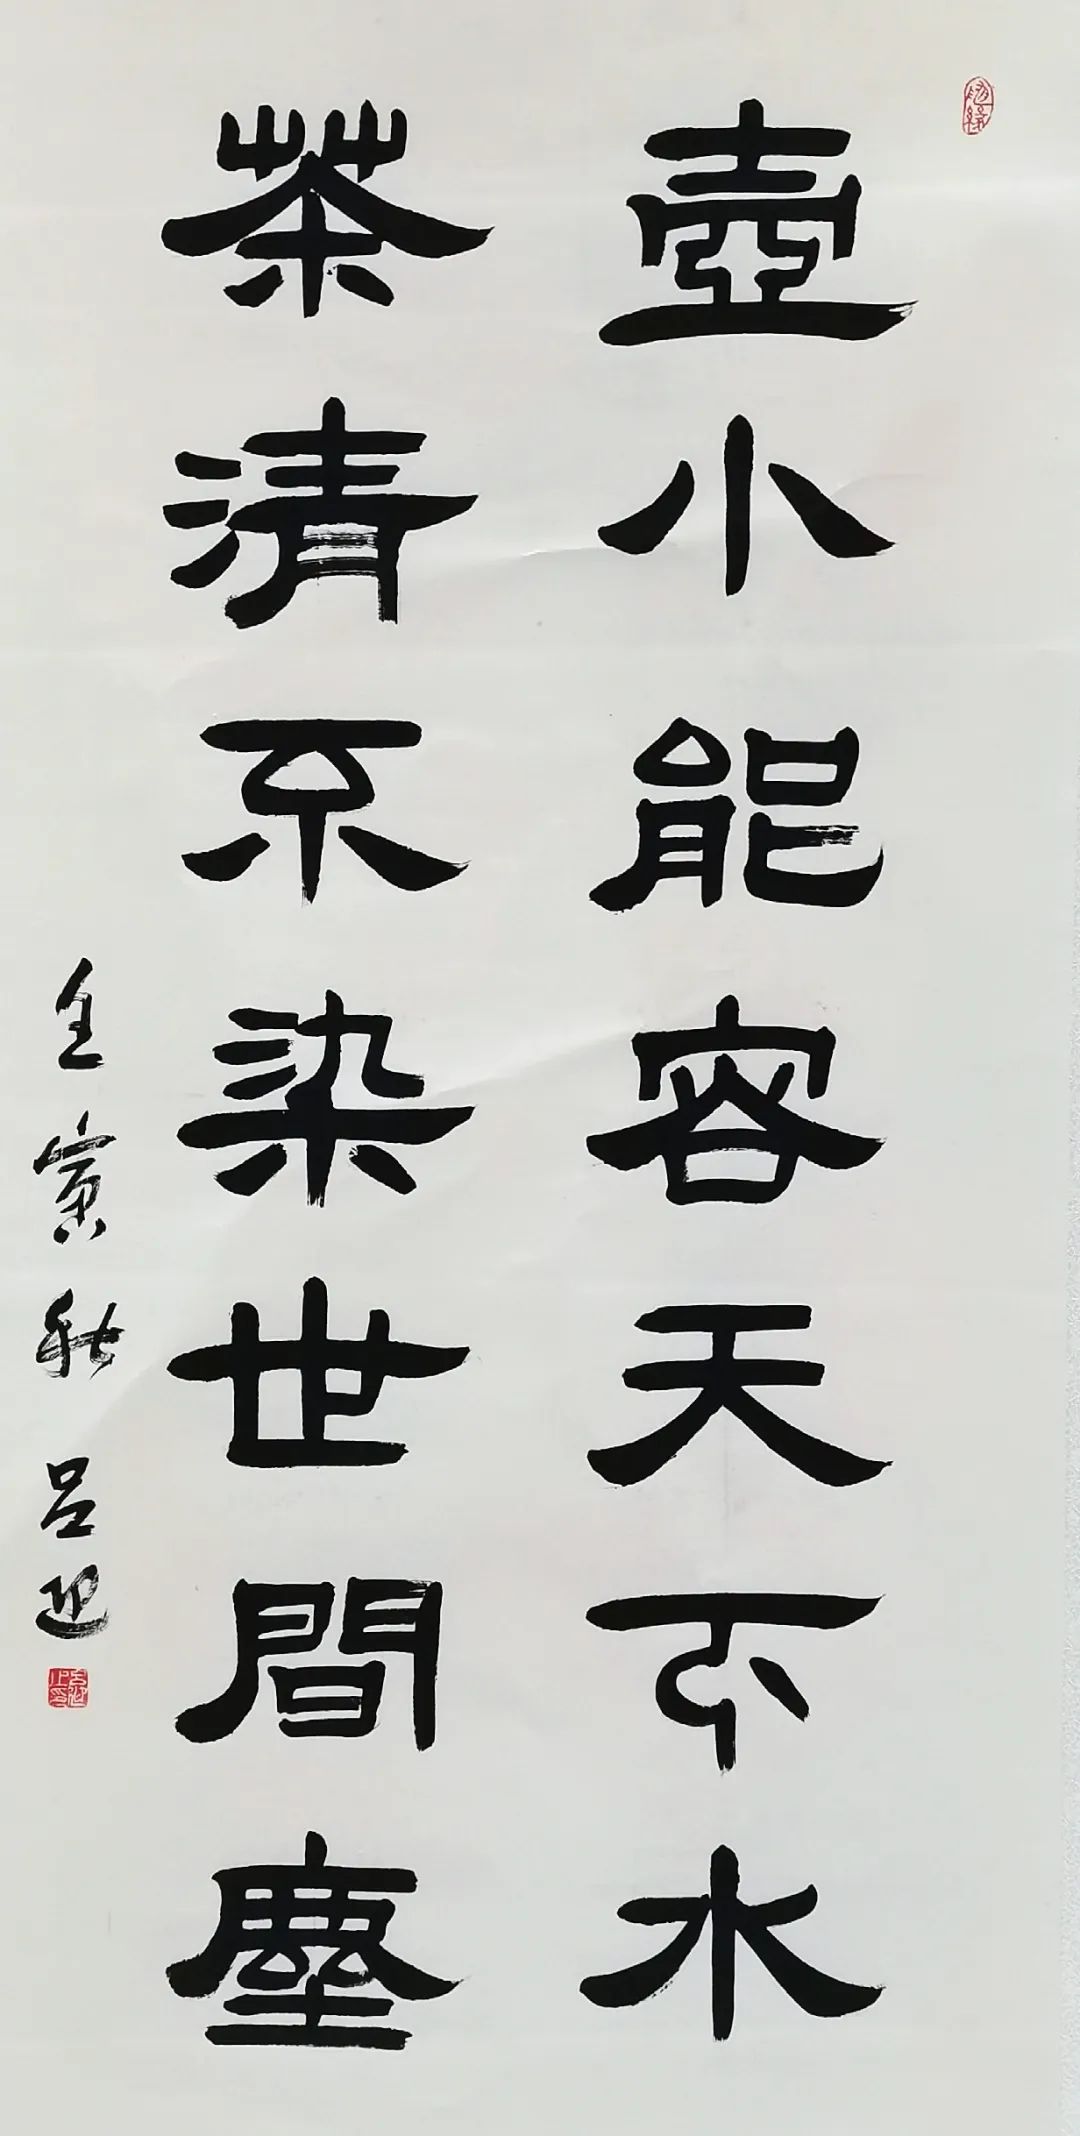 壺小能容天下水
茶清不染世間塵
壬寅秋 吕迎